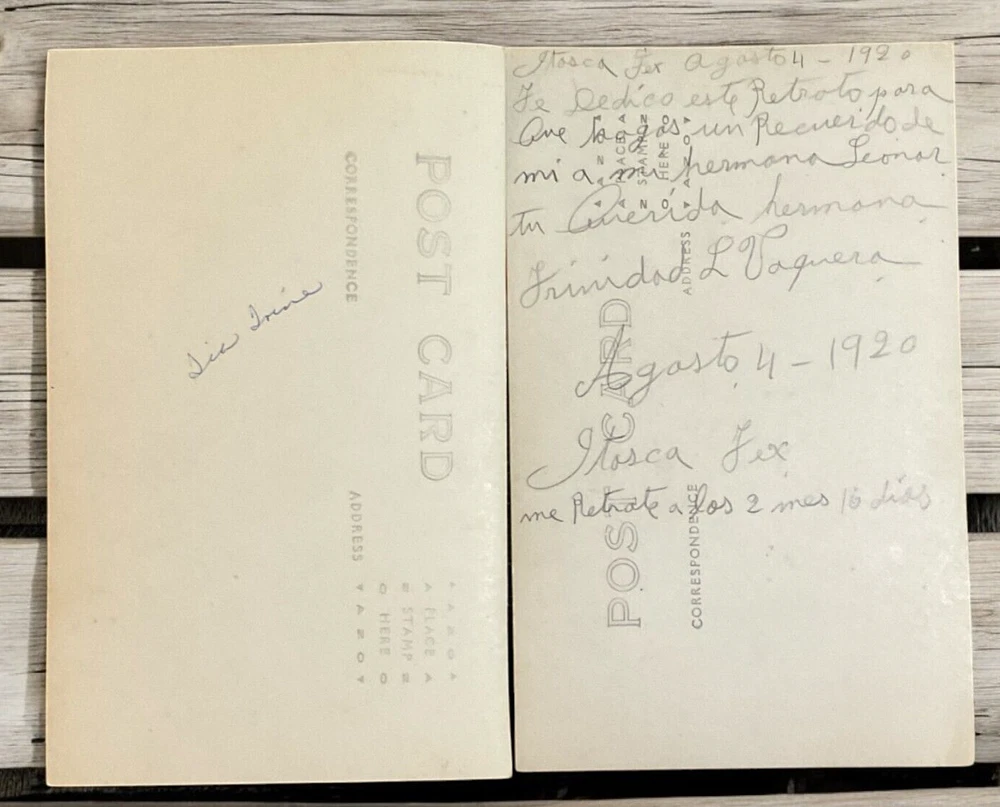 POST CARD
CORRESPONDENCE
ADDRESS
PLACE
STAMP
HERE
Tia Irine
Itasca Tex Agosto 4 - 1920
Te Dedico este Retrato para
Que hagas un Recuerdo de
mi a mi hermana Leonor
tu Querida hermana
Trinidad L Vaquera
Agosto 4 - 1920
Itasca Tex
me Retrate a los 2 mes 16 dias
PLACE
STAMP
HERE
ADDRESS
POST CARD
CORRESPONDENCE